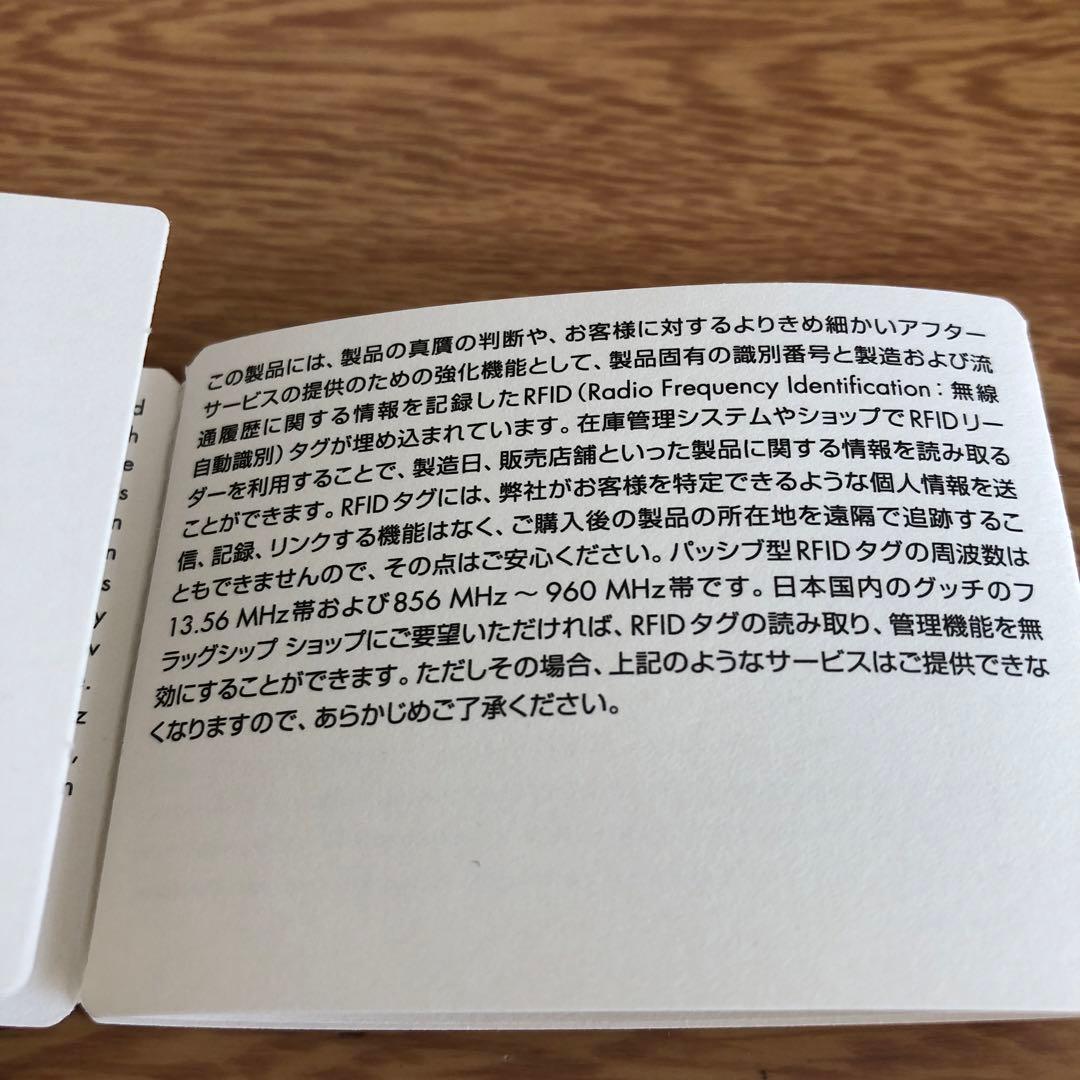 この製品には、製品の真贋の判断や、お客様に対するよりきめ細かいアフター
サービスの提供のための強化機能として、製品固有の識別番号と製造および流
通履歴に関する情報を記録したRFID（Radio Frequency Identification：無線
自動識別）タグが埋め込まれています。在庫管理システムやショップでRFIDリー
ダーを利用することで、製造日、販売店舗といった製品に関する情報を読み取る
ことができます。RFIDタグには、弊社がお客様を特定できるような個人情報を送
信、記録、リンクする機能はなく、ご購入後の製品の所在地を遠隔で追跡するこ
ともできませんので、その点はご安心ください。パッシブ型RFIDタグの周波数は
13.56 MHz帯および856 MHz～960 MHz帯です。日本国内のグッチのフ
ラッグシップ ショップにご要望いただければ、RFIDタグの読み取り、管理機能を無
効にすることができます。ただしその場合、上記のようなサービスはご提供できな
くなりますので、あらかじめご了承ください。